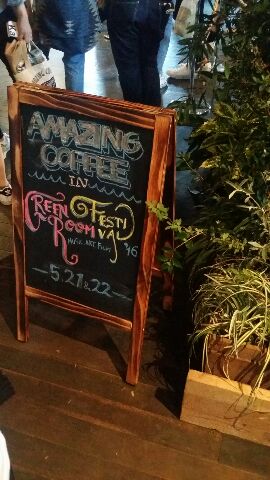 AMAZING
COFFEE
IN
GREEN FESTI
ROOM VAL
MUSIC ART FILM '16
-5.21&22-